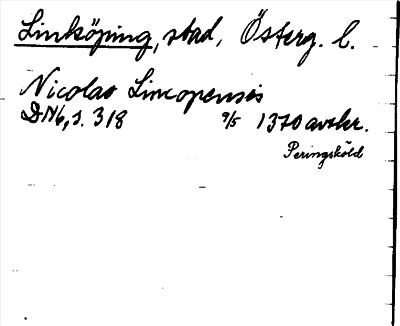 Linköping, stad, Österg. l.
Nicolao Lincopensis
DN6, s. 318 9/5 1370 avskr.
Peringsköld